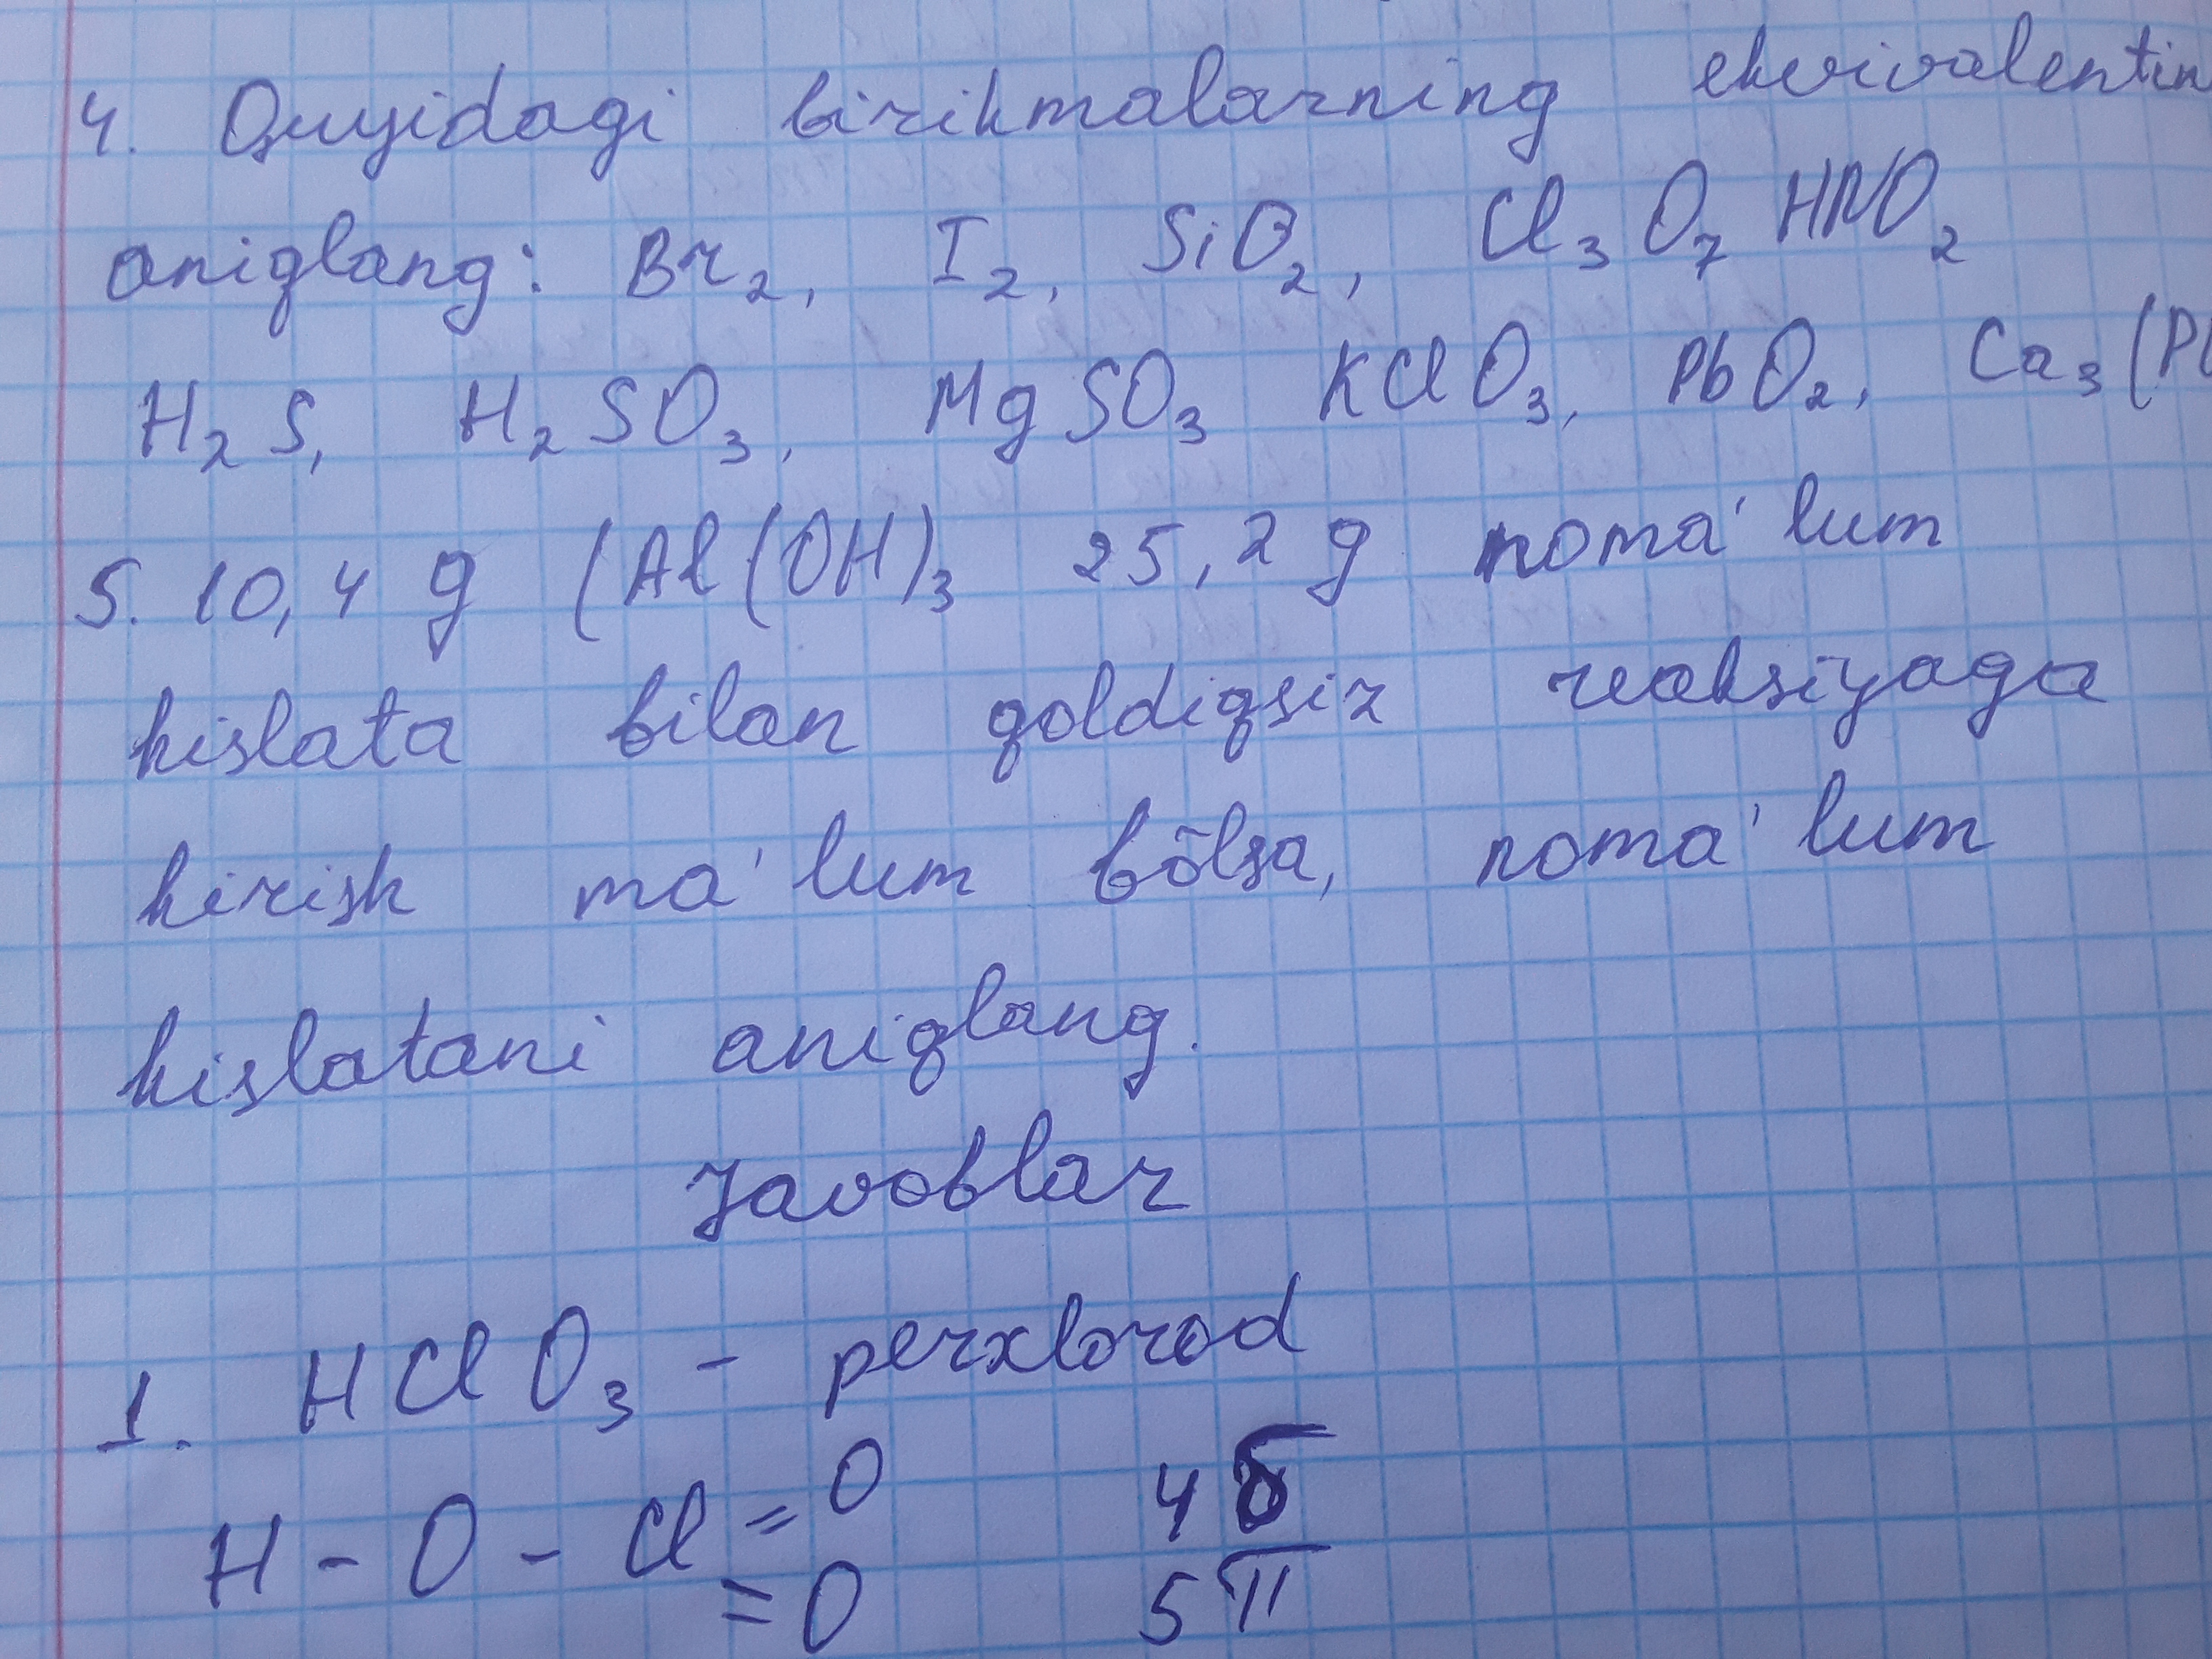 4. Quyidagi birikmalarning ekvivalentin
aniqlang: Br₂, I₂, SiO₂, Cl₃O₇ HNO₂
H₂S, H₂SO₃, MgSO₃ KClO₃, PbO₂, Ca₃(P
5. 10,4 g (Al(OH)₃ 25,2 g noma'lum
kislata bilan qoldiqsiz reaksiyaga
kirish ma'lum bõlsa, noma'lum
kislotani aniqlang.
Javoblar
1. HClO₃ - perxlorod
H-O-Cl=O 4δ
=O 5π